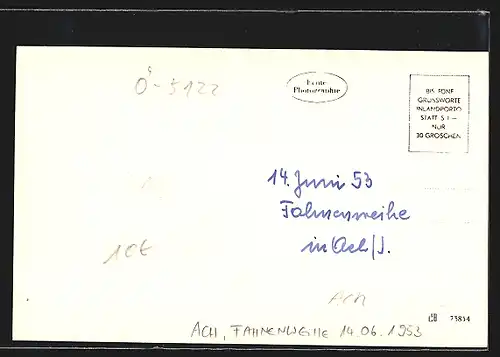 Ö-5122
Echte
Photographie
BIS FÜNF
GRUSSWORTE
INLANDPORTO
STATT S 1—
NUR
30 GROSCHEN
14. Juni 53
Fahnenweihe
in Ach/S.
10€
Ach
23854
ACH, FAHNENWEIHE 14.06.1953